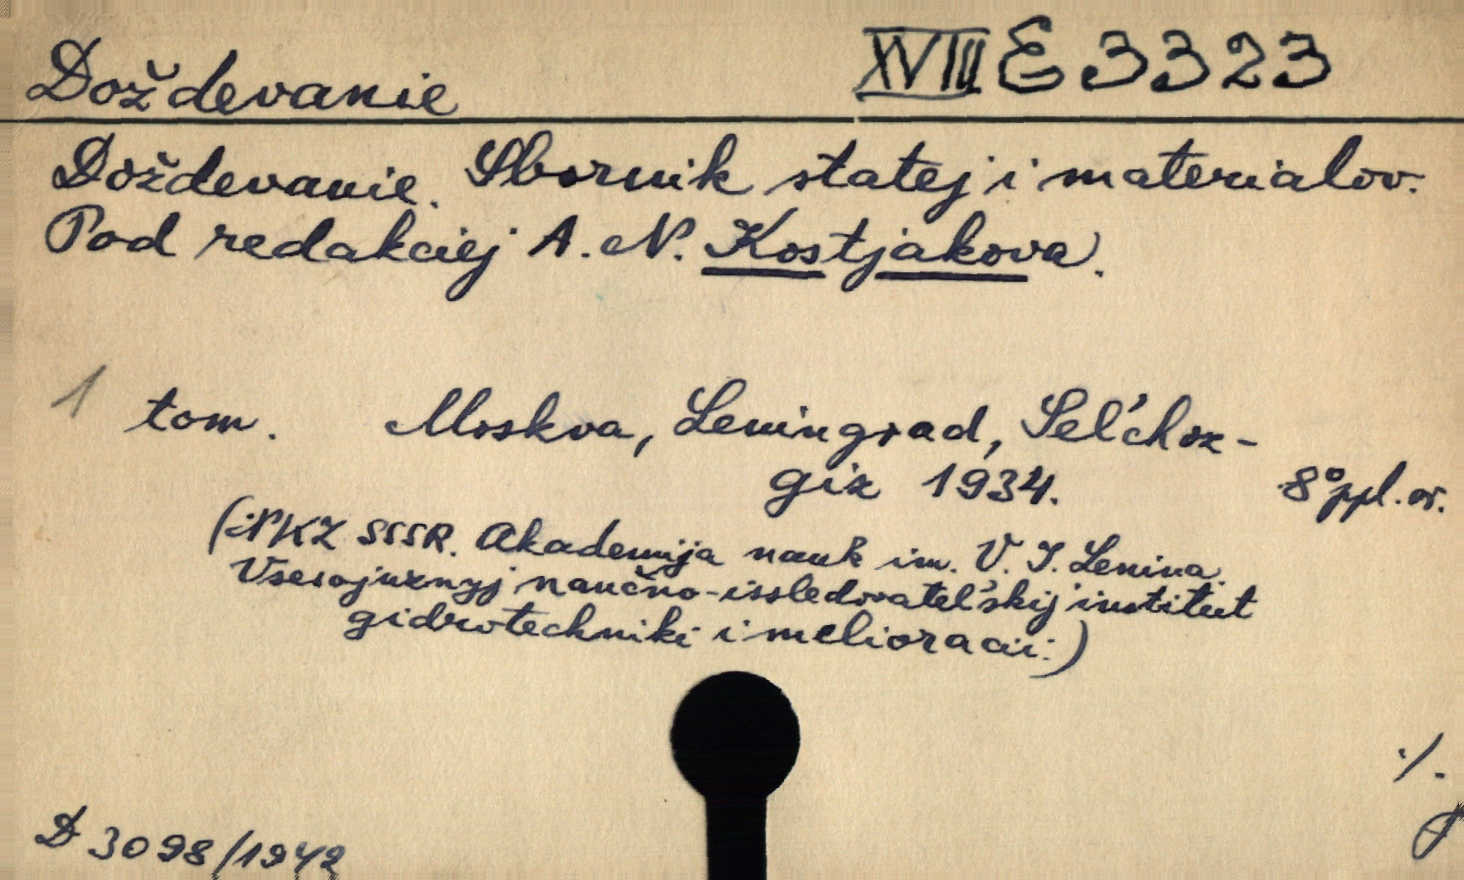 Doždevanie XVIII E 3323
Doždevanie. Sbornik statej i materialov.
Pod redakciej A. N. Kostjakova.
1 tom. Moskva, Leningrad, Sel'choz-
giz 1934. 8°
(:NKZ SSSR. Akademija nauk im. V. I. Lenina.
Vsesojuznyj naučno-issledovatel'skij institut
gidrotechniki i melioracii:)
./.
D 3098/1942